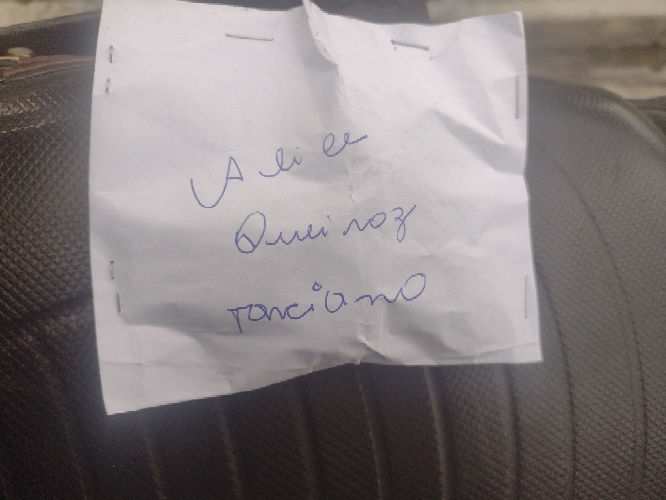 Alice
Queiroz
Tarciano